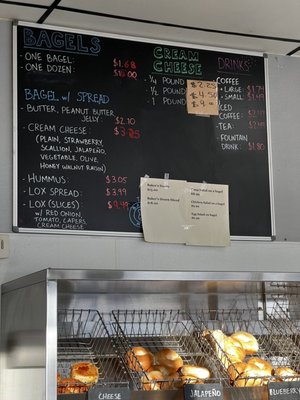 BAGELS
- ONE BAGEL: $1.68
- ONE DOZEN:
BAGEL W/ SPREAD
- BUTTER, PEANUT BUTTER
JELLY $2.10
- CREAM CHEESE: $3.25
(PLAIN, STRAWBERRY,
SCALLION, JALAPEÑO,
VEGETABLE, OLIVE,
HONEY WALNUT RAISIN)
- HUMMUS: $3.05
- LOX SPREAD: $3.99
- LOX (SLICES):
W/ RED ONION,
TOMATO, CAPERS,
CREAM CHEESE
CREAM
CHEESE
- 1/4 POUND $2.25
- 1/2 POUND $4.50
- 1 POUND
DRINKS:
COFFEE
- LARGE: $1.74
- SMALL:
ICED
COFFEE:
TEA:
FOUNTAIN
DRINK: $1.80
CHEESE
JALAPEÑO
BLUEBERRY